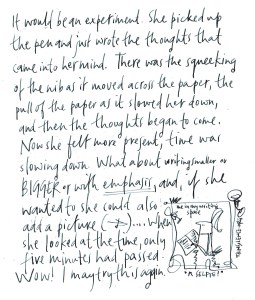 It would be an experiment. She picked up
the pen and just wrote the thoughts that
came into her mind. There was the squeeking
of the nib as it moved across the paper, the
pull of the paper as it slowed her down,
and then the thoughts began to come.
Now she felt more present, time was
slowing down. What about writing smaller or
BIGGER or with emphasis, and, if she
wanted to she could also
add a picture (→).... When
she looked at the time, only
five minutes had passed.
Wow! I may try this again.
me in my writing
space
"A SELFIE"